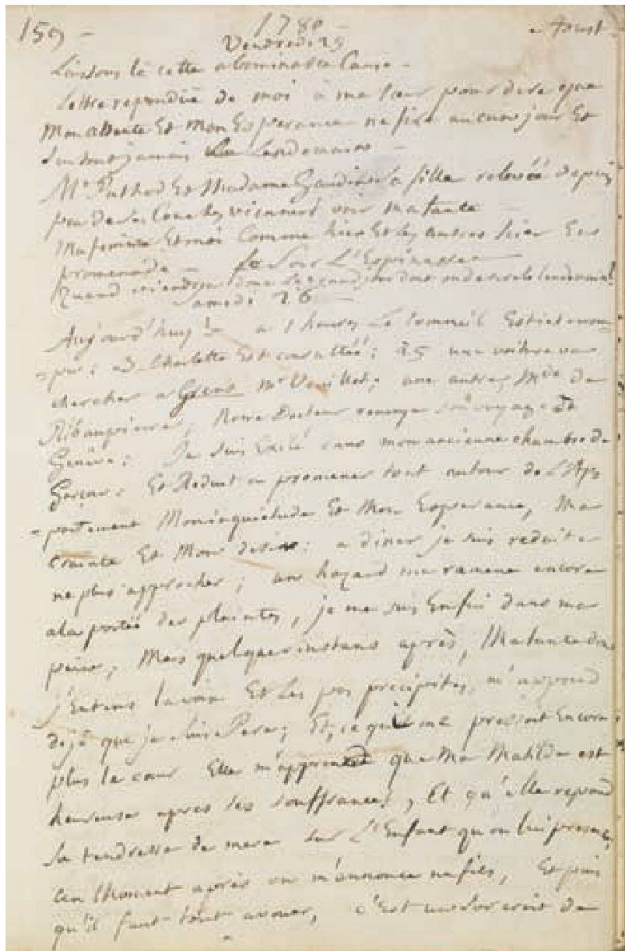 159 - 1780 - Aoust
Vendredi 25
Laissons là cette abominable
Lettre de moi à ma sœur pour dire que
Mon attente Et Mon Esperance ne fixe aucun jour Et
jamais Le Lendemain -
Mr Et Madame sa fille relevée depuis
peu de ses Couches viennent voir ma tante
Et moi comme hier Et les autres hier En
promenade - Le Soir L'Espinasse
Quand viendra donc
Samedi 26
Aujourd'huy ! - a 1 heures Le Sommeil Est
; Charlotte Est ; une voiture va
chercher a Mr ; une autre, Mde de
Ribaupierre ; Notre Docteur son voyage de
Genève ; Je suis Exilé dans mon ancienne chambre de
Garçon ; Et Reduit a promener tout autour de L'Ap
=partement Mon inquietude Et Mon Esperance, Ma
crainte Et Mon desir : a diner je suis reduit a
ne plus approcher ; un hazard me ramene encore
a la portée des plaintes, je me suis Enfui dans ma
; Mais quelques instans après, Ma tante
j'Entens la voix Et Les pas precipités, m'apprend
dejà que je suis Pere ; Et, ce qui me pressoit Encore
plus le cœur Elle m'apprend que Ma Matilde est
heureuse après ses souffrances, Et qu'elle repand
sa tendresse de mere sur L'Enfant qu'on lui presente,
un Moment après on m'annonce un fils, Et puis
qu'il faut tout avouer, c'Est un surcroit de